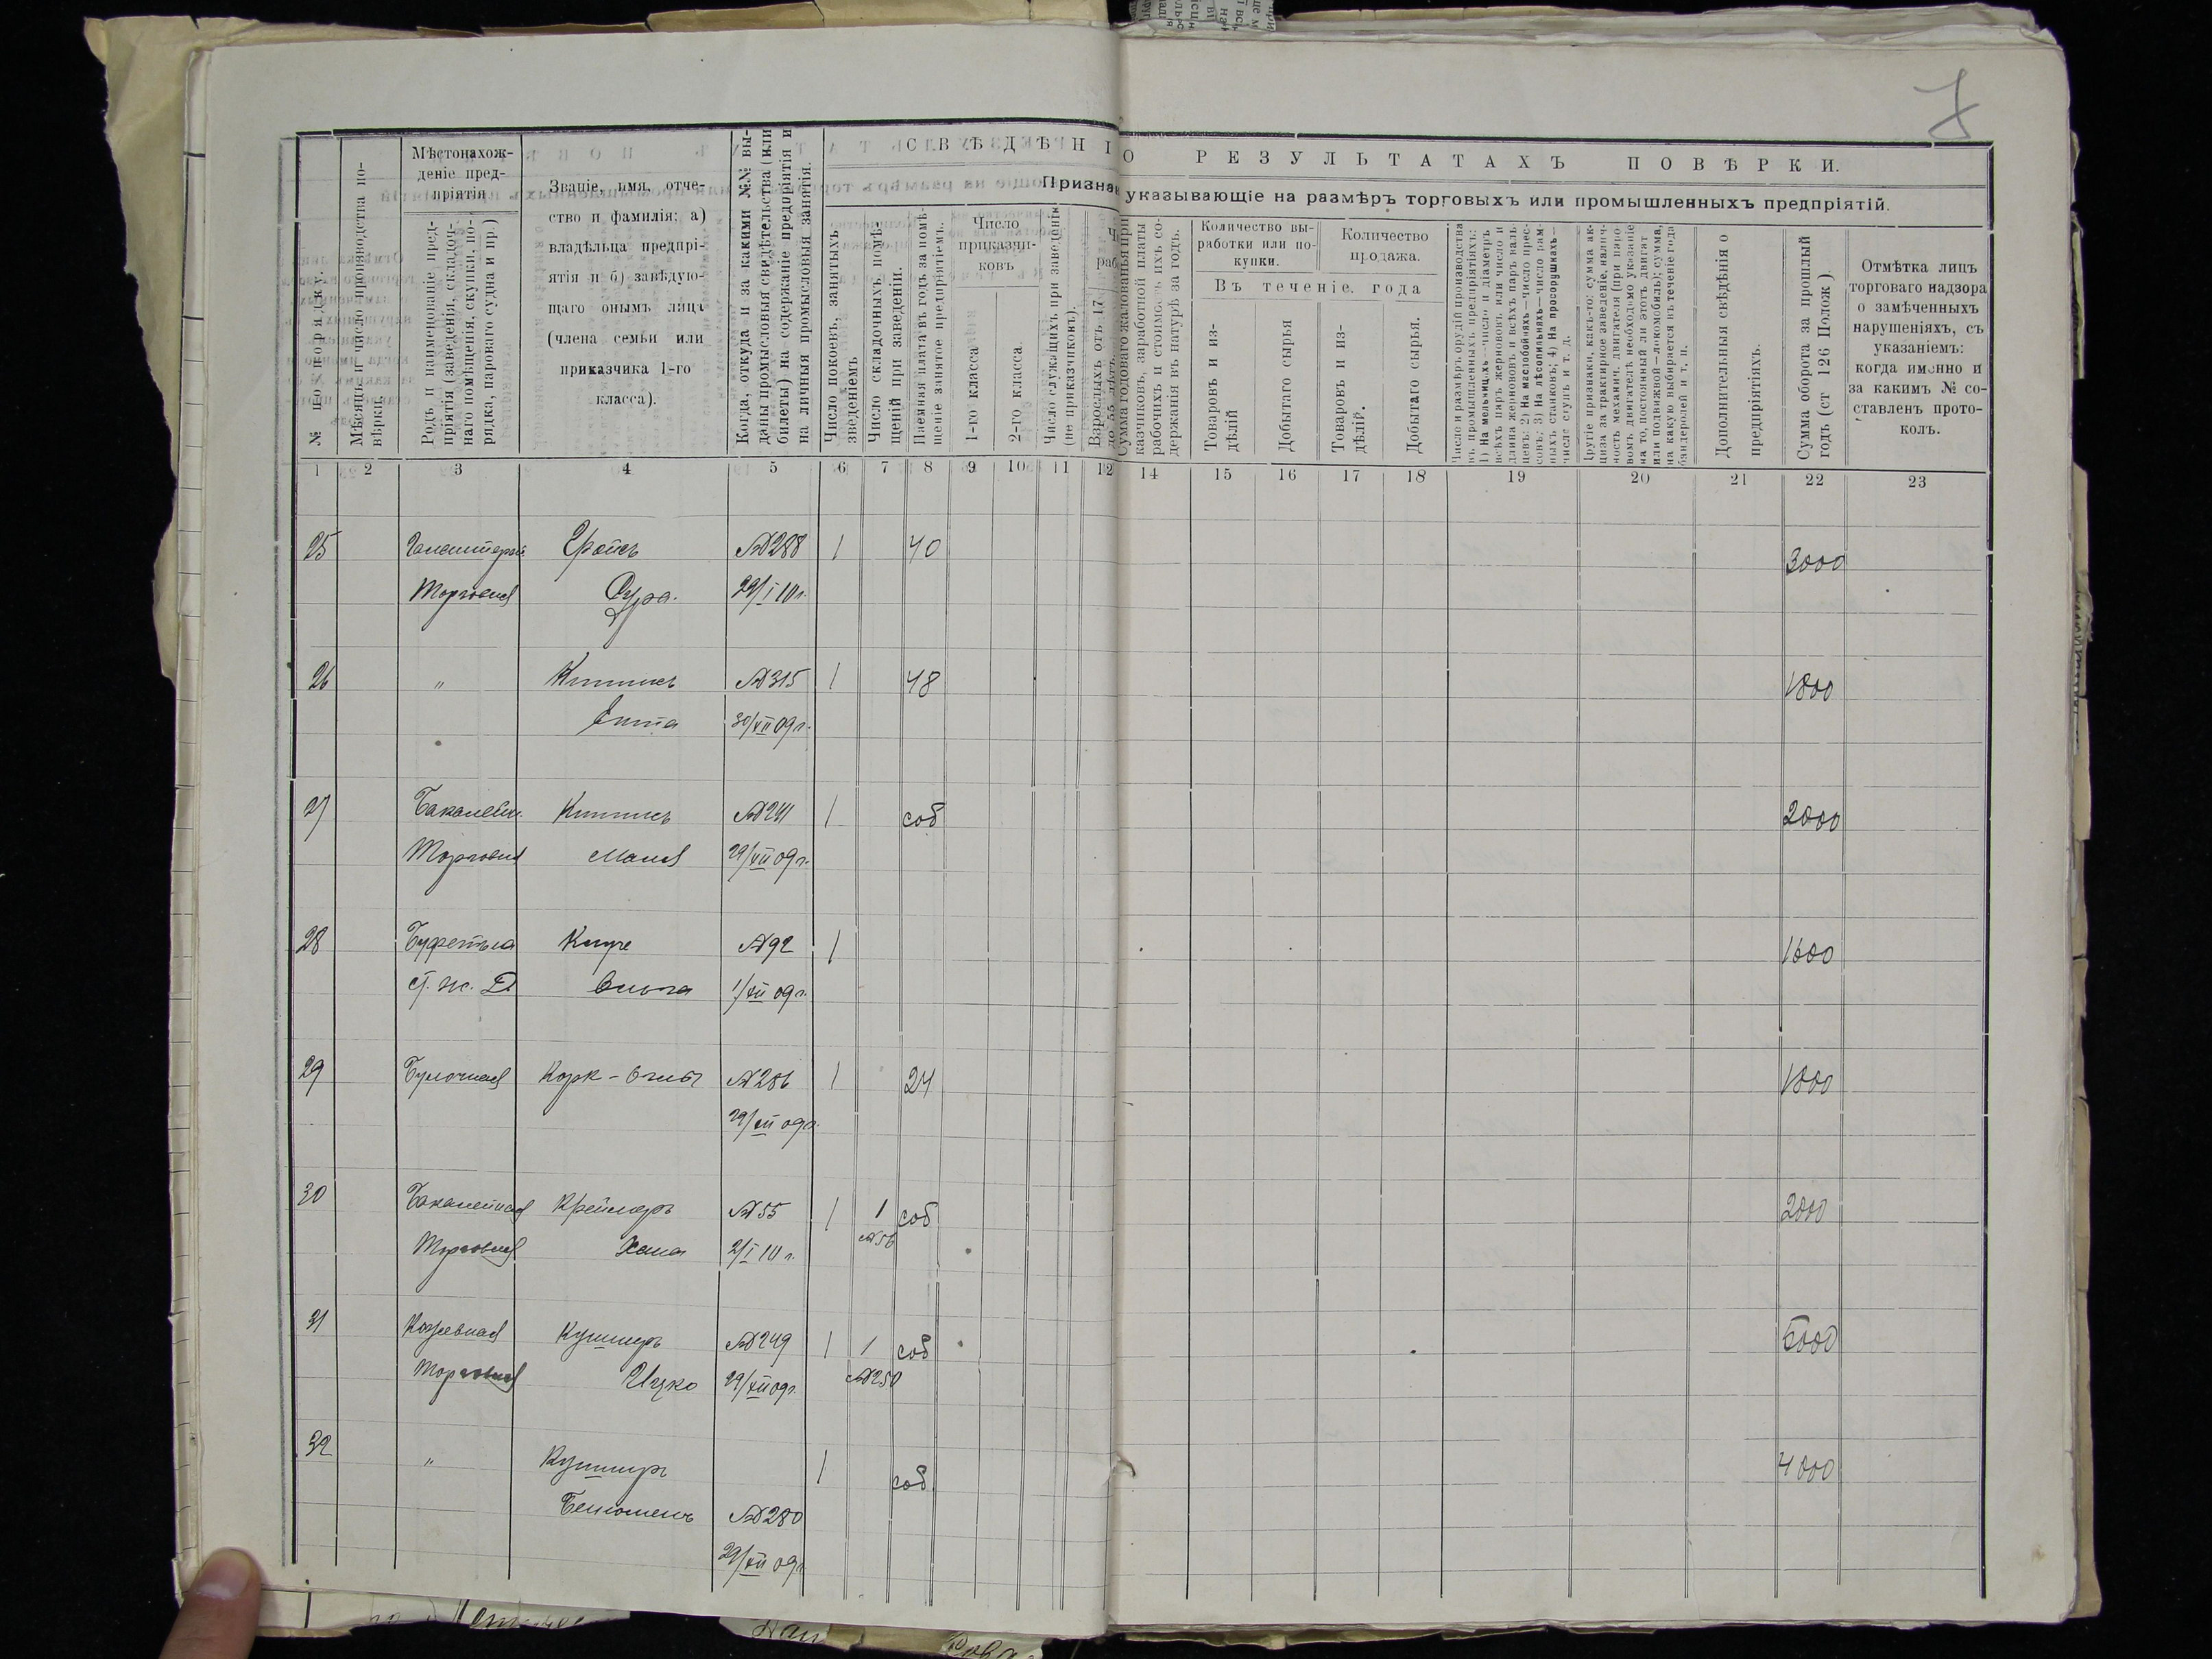 7
СВѢДѢНІ О РЕЗУЛЬТАТАХЪ ПОВѢРКИ.
Признак указывающіе на размѣръ торговыхъ или промышленныхъ предпріятій.
№ по порядку.
Мѣсяцъ и число производства повѣрки.
Мѣстонахожденіе предпріятія
Родъ и наименованіе предпріятія (заведенія, складочнаго помѣщенія, скупки, порядка, пароваго судна и пр.)
Званіе, имя, отчество и фамилія: а) владѣльца предпріятія и б) завѣдующаго онымъ лица (члена семьи или приказчика 1-го класса).
Когда, откуда и за какими №№ выданы промысловыя свидѣтельства (или билеты) на содержаніе предпріятія и на личныя промысловыя занятія.
Число покоевъ, занятыхъ зведеніемъ
Число складочныхъ помѣщеній при заведеніи.
Наемная плата въ годъ за помѣщеніе занятое предпріятіемъ.
Число приказчиковъ
1-го класса
2-го класса.
Число служащихъ при заведеніи (не приказчиковъ).
Взрослыхъ отъ 17 до 55 лѣтъ
Сумма годоваго жалованья приказчиковъ, заработной платы рабочихъ и стоимость ихъ содержанія въ натурѣ за годъ.
Количество выработки или покупки.
Количество продажа.
Въ теченіе года
Товаровъ и издѣлій
Добытаго сырья
Товаровъ и издѣлій.
Добытаго сырья.
Число и размѣръ орудій производства въ промышленныхъ предпріятіяхъ: 1) На мельницахъ—число и діаметръ всѣхъ паръ жернововъ или число и длина жернововъ и всѣхъ паръ вальцевъ; 2) На маслобойняхъ—число прессовъ; 3) На лѣсопильняхъ—число рамныхъ станковъ; 4) На просорушкахъ—число ступъ и т. д.
Другіе признаки, какъ-то: сумма акциза за трактирное заведеніе, наличность механич. двигателя (при паровомъ двигателѣ необходимо указаніе на то, постоянный ли этотъ двигат или подвижной—локомобиль); сумма, на какую выбирается въ теченіе года бандеролей и т. п.
Дополнительныя свѣдѣнія о предпріятіяхъ.
Сумма оборота за прошлый годъ (ст 126 Полож.)
Отмѣтка лицъ торговаго надзора о замѣченныхъ нарушеніяхъ, съ указаніемъ: когда именно и за какимъ № составленъ протоколъ.
1 2 3 4 5 6 7 8 9 10 11 12 14 15 16 17 18 19 20 21 22 23
25 №288 1 40 3000
Торговля Сура. 29/I 10 г.
26 " Киттисъ №315 1 48 1800
Ента 30/XII 09 г.
27 Бакалейн. Киттисъ №241 1 соб 2000
Торговля Маля 29/XII 09 г.
28 Буфетъ на №92 1 1600
ст. ж. Д. Ольга 1/XII 09 г.
29 Булочная №286 1 24 1800
29/XII 09 г.
30 Бакалейная Креймеръ №55 1 1 соб 2000
Торговля Хана 2/I 10 г. №56
31 Кожевная Кушниръ №249 1 1 соб 5000
Торговля Ицко 29/XII 09 г. №250
32 " Кушниръ 1 соб 4000
№280
29/XII 09 г